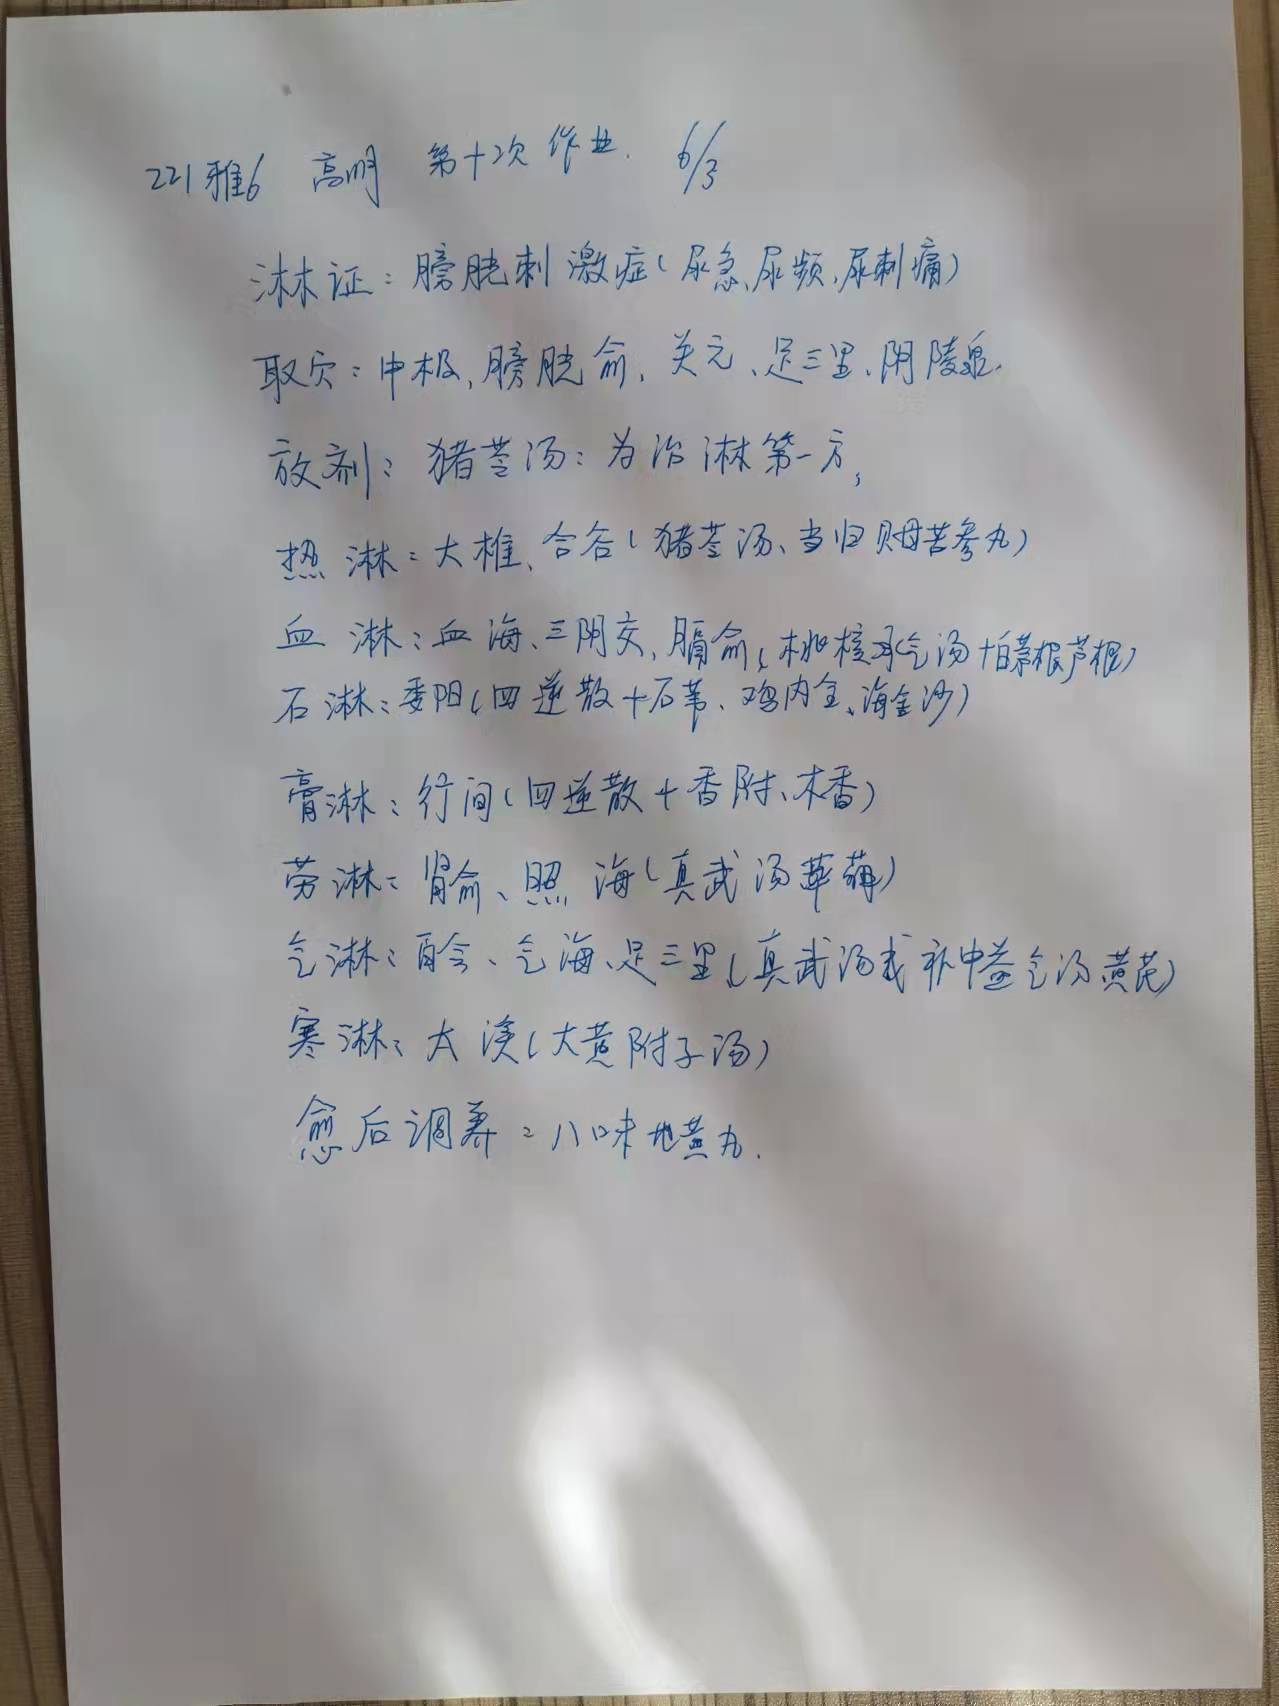 221雅6 高明 第十次作业. 6/3
淋证：膀胱刺激症(尿急、尿频、尿刺痛)
取穴：中极、膀胱俞、关元、足三里、阴陵泉.
放剂：猪苓汤：为治淋第一方,
热淋：大椎、合谷(猪苓汤、当归贝母苦参丸)
血淋：血海、三阴交、膈俞(桃核承气汤+白茅根芦根)
石淋：委阳(四逆散+石苇、鸡内金、海金沙)
膏淋：行间(四逆散+香附、木香)
劳淋：肾俞、照海(真武汤萆薢)
气淋：百会、气海、足三里(真武汤或补中益气汤黄芪)
寒淋：太溪(大黄附子汤)
愈后调养：八味地黄丸.